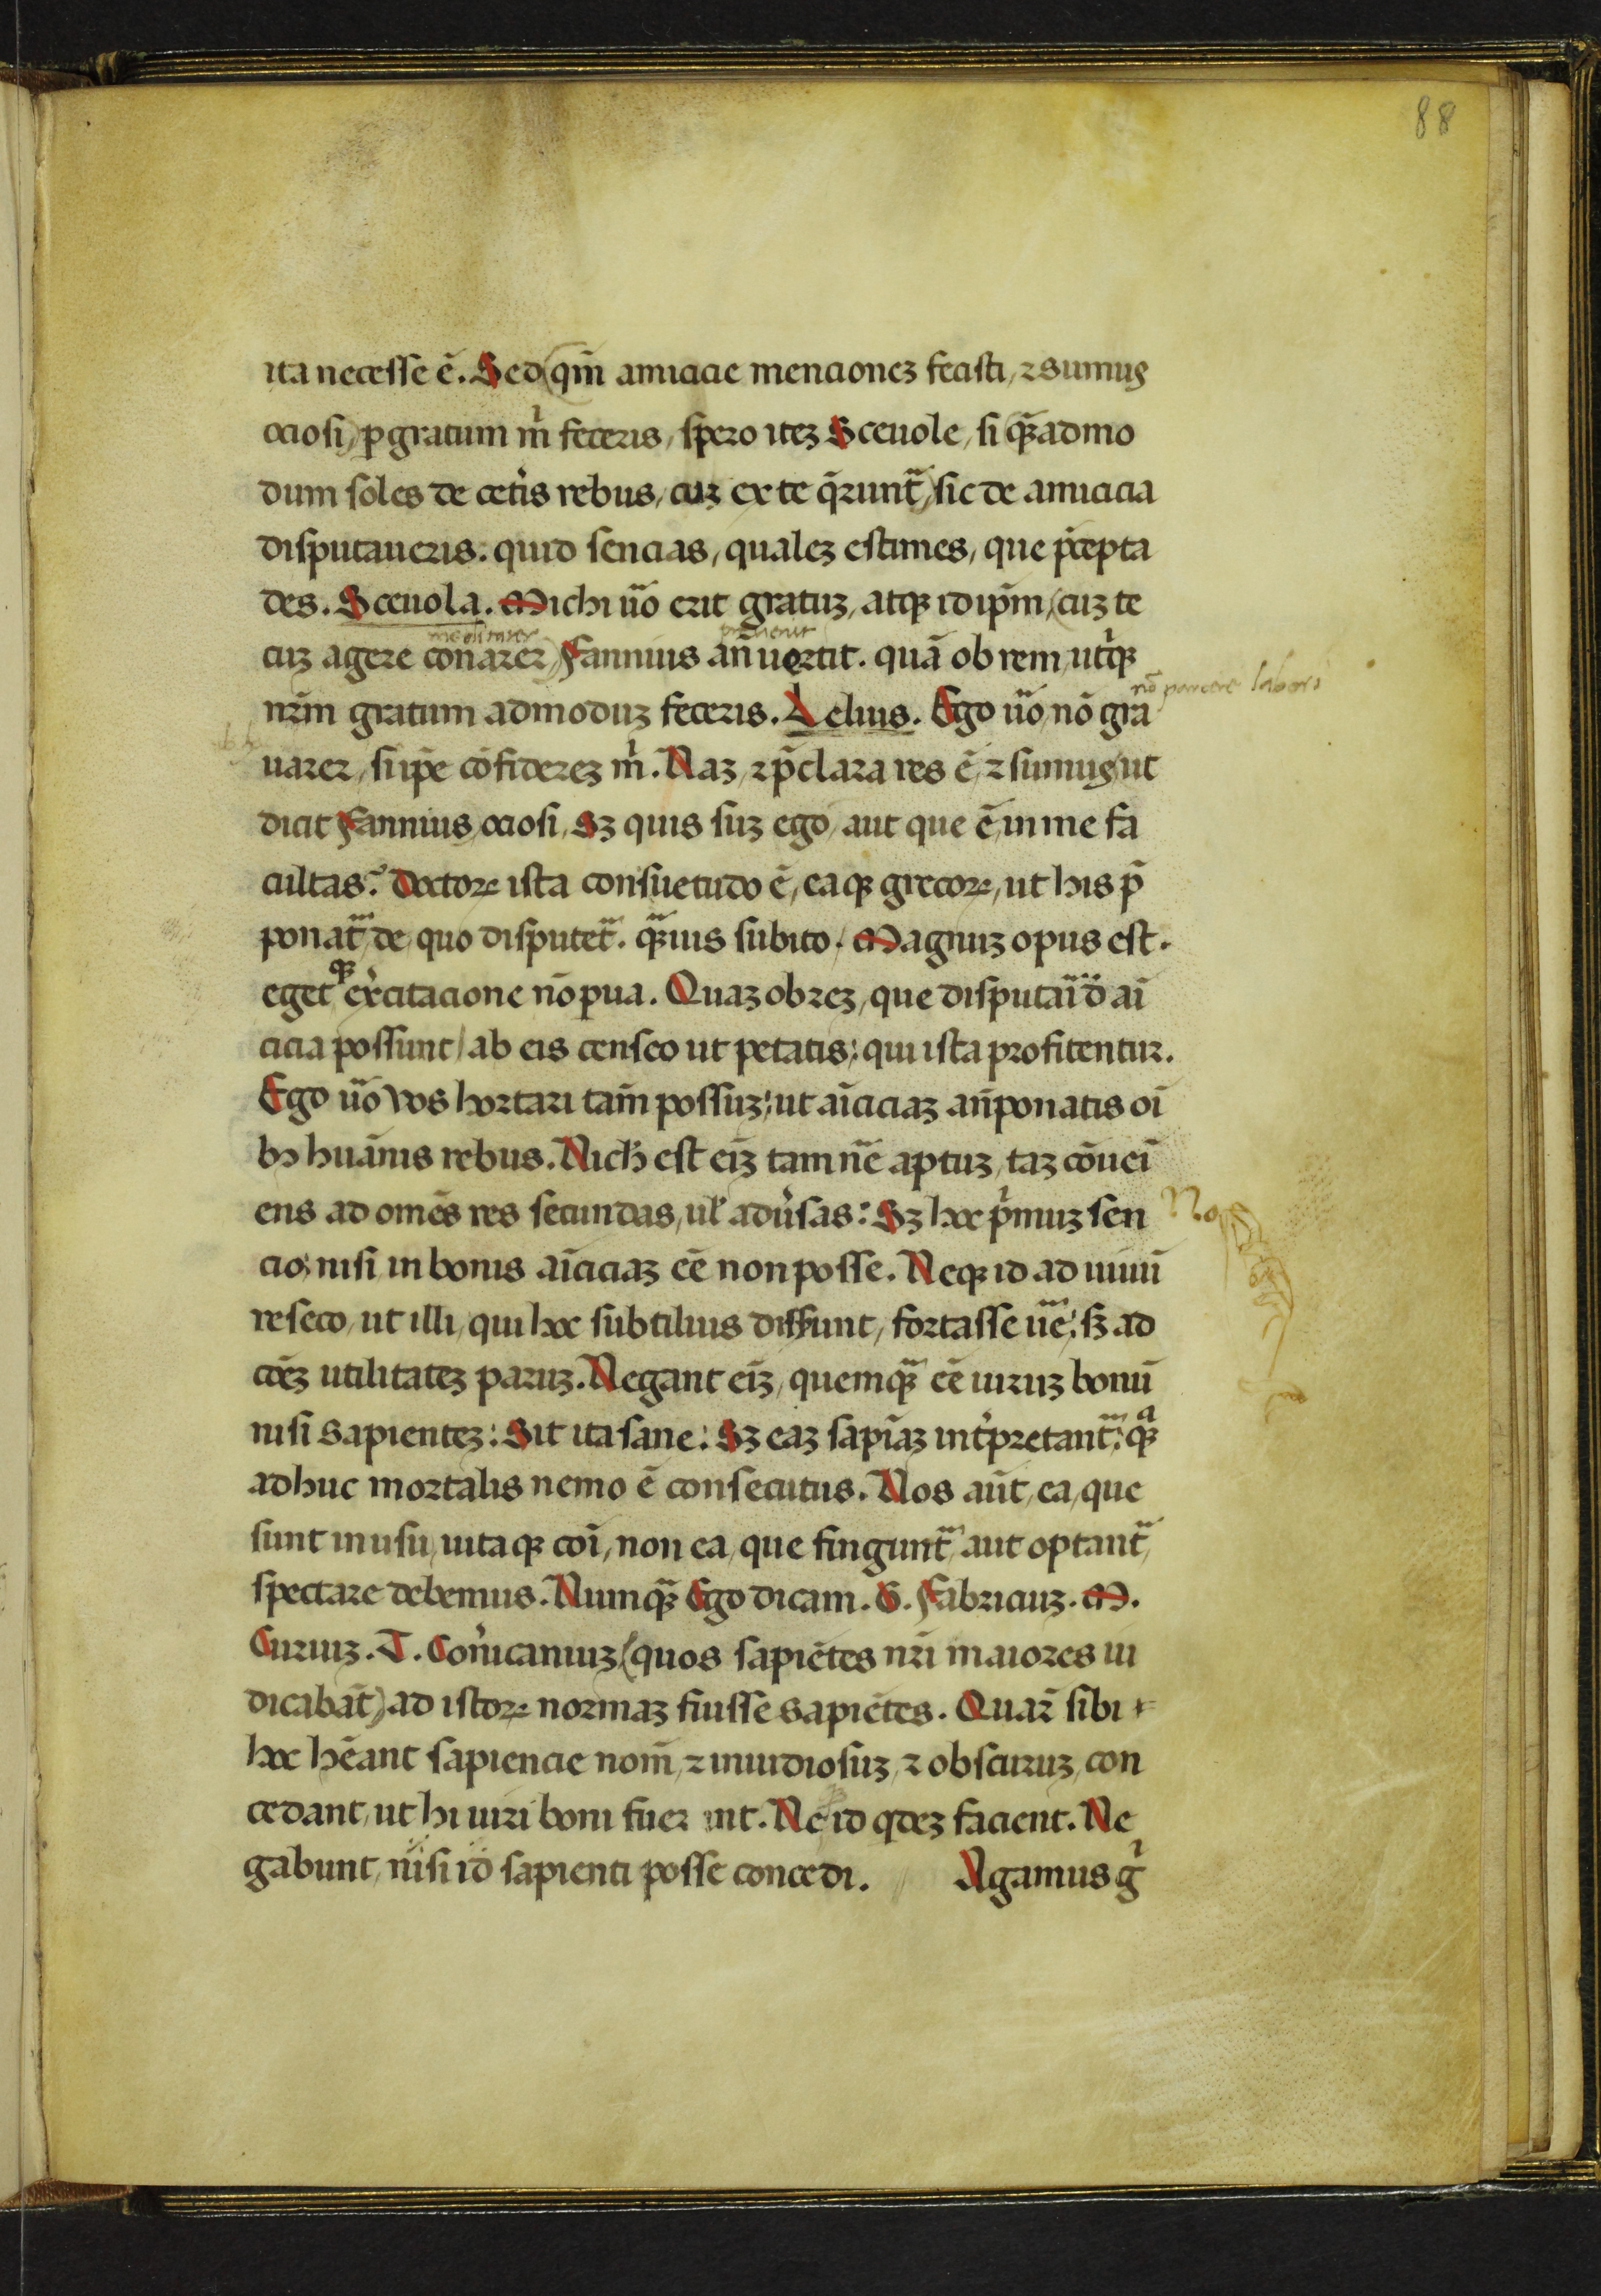 88
ita necesse ē. Sed (qm̄ amicicie mencionez fecisti, ⁊ sumus
ociosi) ꝑgratum m̉ feceris, spero itez Sceuole, si quēadmo
dum soles de cetis rebus, cuz ex te q̄runt̄, sic de amicicia
disputaueris. quid sencias, qualez estimes, que p̄cepta
des. Sceuola. Michi ūo erit gratuz, atqꝫ id ip̄m (cuz te
cuz agere conarer) Fannius an̄uortit. quā ob rem, utrqꝫ
nr̄m gratum admoduz feceris. Lelius. Ego ūo, nō gra
nō parcere labori
uarer, si ip̄e cōfiderez m̉. Naz, ⁊ p̄clara res ē, ⁊ sumus, ut
dicit Fannius, ociosi, Sꝫ quis suz ego, aut que ē, in me fa
cultas? Doctoꝝ ista consuetudo ē, eaqꝫ grecoꝝ, ut his p̄
ponat̄, de quo disputet̄. qꝫuis subito. Magnuz opus est.
egetqꝫ excitacione nō pua. Quaz ob rez, que disputāī d̄ aī
cicia possunt, ab eis censeo ut petatis: qui ista profitentur.
Ego ūo vos hortari tam̄ possuz, ut aīciciaz an̄ponatis oī
bꝫ huānis rebus. Nich̄ est eīz tam nē aptuz, taz cōueī
ens ad omēs res secundas, ul̉ adūsas: Sꝫ hoc p̉muz sen
No
cio, nisi in bonis aīciciaz eē non posse. Neqꝫ id ad uiuū
reseco, ut illi, qui hoc subtilius dissunt, fortasse ūe, sꝫ ad
coēz utilitatez paruz. Negant eīz, quemqꝫ eē uiruz bonū
nisi sapientez: Sit ita sane: Sꝫ eaz sapīaz int̉pretant̄, qꝫ
adhuc mortalis nemo ē consecutus. Nos aūt, ea, que
sunt in usu, uitaqꝫ coī, non ea, que fingunt̄, aut optant̄,
spectare debemus. Numqꝫ Ego dicam. G. Fabriciuz. M.
Curiuz. T. Coruncaniuz (quos sapiētes nr̄i maiores iu
dicabāt) ad istoꝝ normaz fuisse sapiētes. Quar̄ sibi
hoc hēant sapiencie nom̄, ⁊ inuidiosuz, ⁊ obscuruz, con
cedant, ut hi uiri boni fuerint. Ne id qdez facient. Ne
gabunt, nisi id sapienti posse concedi. Agamus g̉